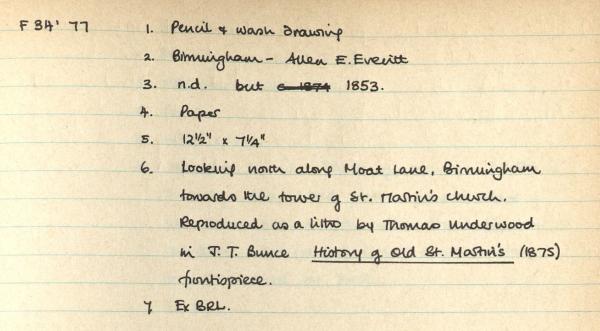 F 34' 77 1. Pencil & wash drawing
2. Birmingham - Allen E. Everitt
3. n.d. but c. 1874 1853.
4. Paper
5. 12½" x 7¼"
6. Looking north along Moat Lane, Birmingham
towards the tower of St. Martin's church.
Reproduced as a litho by Thomas Underwood
in J. T. Bunce History of Old St. Martin's (1875)
frontispiece.
7 Ex BRL.